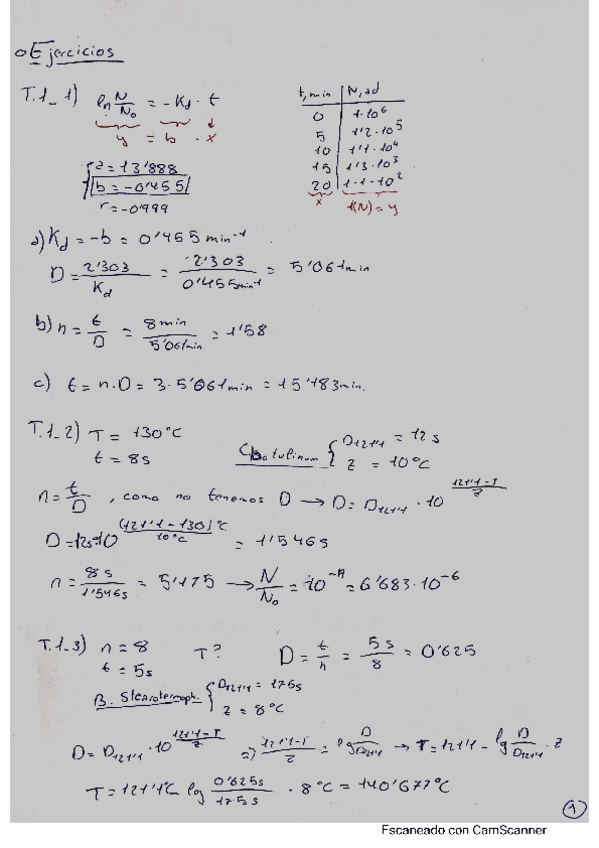 o Ejercicios
T.1_1) ln N/N₀ = -Kd · t
y = b · x
t, min | N, ad
0 | 1·10⁶
5 | 1'2·10⁵
10 | 1'1·10⁴
15 | 1'3·10³
20 | 1·1·10²
x
f(N) = y
a = 13'888
b = -0'455
r = -0'999
a) Kd = -b = 0'455 min⁻¹
D = 2'303/Kd = 2'303/0'455min⁻¹ = 5'061min
b) n = t/D = 8min/5'061min = 1'58
c) t = n·D = 3·5'061min = 15'183min.
T.1_2) T = 130°C
t = 8s
C. botulinum { D121'1 = 12s
z = 10°C
n = t/D , como no tenemos D → D = D121'1 · 10^(121'1-T)/z
D = 12s·10^(121'1-130)°C/10°C = 1'546s
n = 8s/1'546s = 5'175 → N/N₀ = 10⁻ⁿ = 6'683·10⁻⁶
T.1_3) n = 8 T? D = t/n = 5s/8 = 0'625
t = 5s
B. Stearotermoph. { D121'1 = 175s
z = 8°C
D = D121'1 · 10^(121'1-T)/z => (121'1-T)/z = lg D/D121'1 → T = 121'1 - lg D/D121'1 · z
T = 121'1°C log 0'625s/175s · 8°C = 140'677°C
1
Escaneado con CamScanner